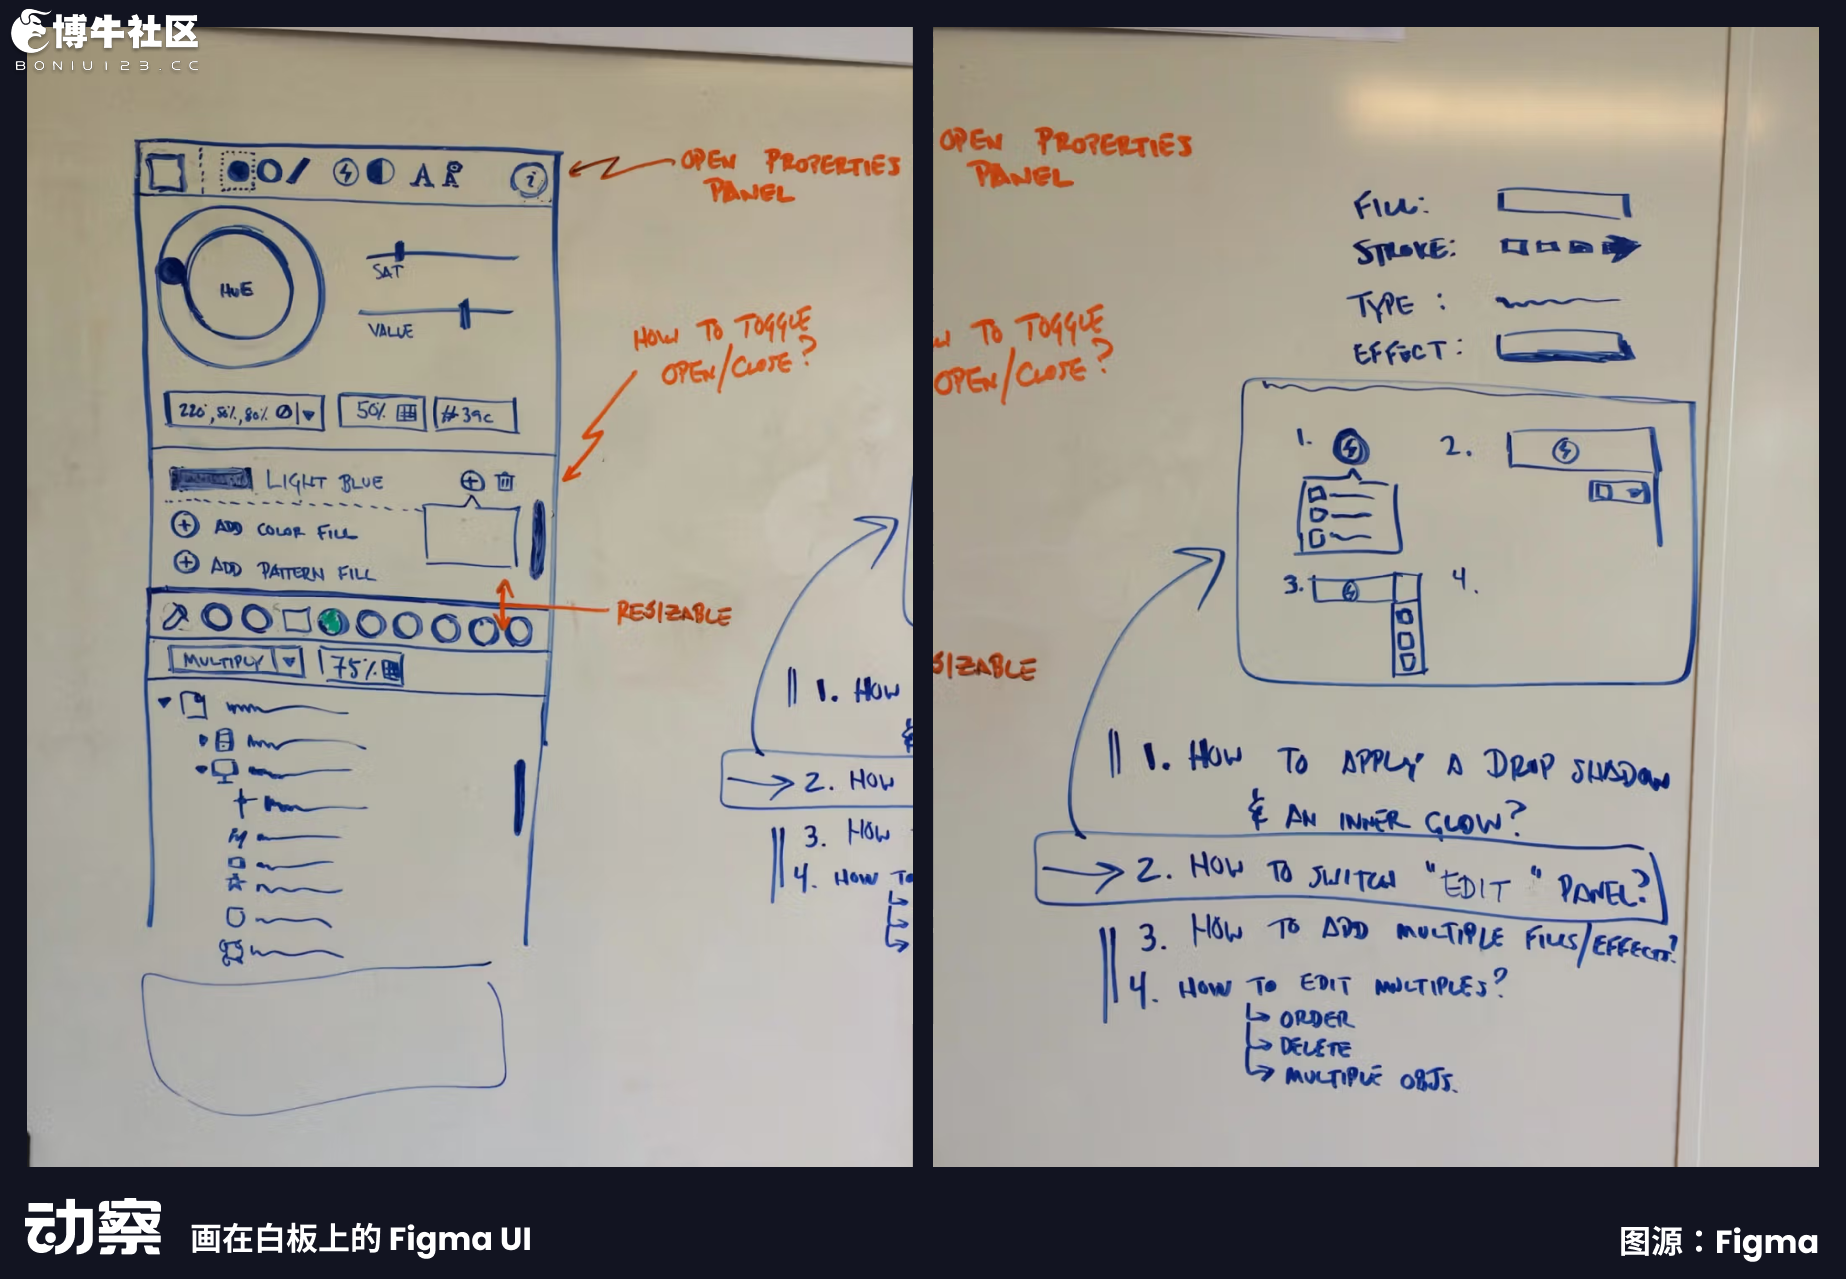 博牛社区
BONIU123.CC
OPEN PROPERTIES
PANEL
HUE
SAT
VALUE
HOW TO TOGGLE
OPEN/CLOSE?
220°, 50%, 80%
50%
#39c
LIGHT BLUE
ADD COLOR FILL
ADD PATTERN FILL
RESIZABLE
MULTIPLY
75%
1. HOW
&
2. HOW
3. HOW
4. HOW TO
OPEN PROPERTIES
PANEL
W TO TOGGLE
OPEN/CLOSE?
SIZABLE
FILL:
STROKE:
TYPE :
EFFECT:
1.
2.
3.
4.
1. HOW TO APPLY A DROP SHADOW
& AN INNER GLOW?
2. HOW TO SWITCH "EDIT" PANEL?
3. HOW TO ADD MULTIPLE FILLS/EFFECTS?
4. HOW TO EDIT MULTIPLES?
ORDER
DELETE
MULTIPLE OBJS.
动察
画在白板上的 Figma UI
图源：Figma